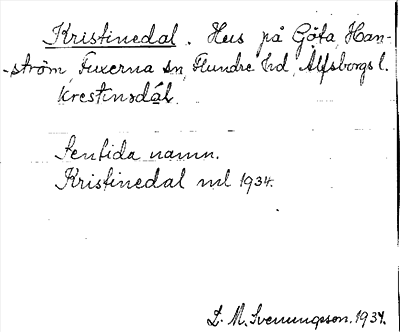 Kristinedal. Hus på Göta, Han-
-ström, Fuxerna sn, Flundre hd, Älfsborgs l.
krestinsdál.
Sentida namn.
Kristinedal ml 1934.
D. M. Svenungsson. 1934.